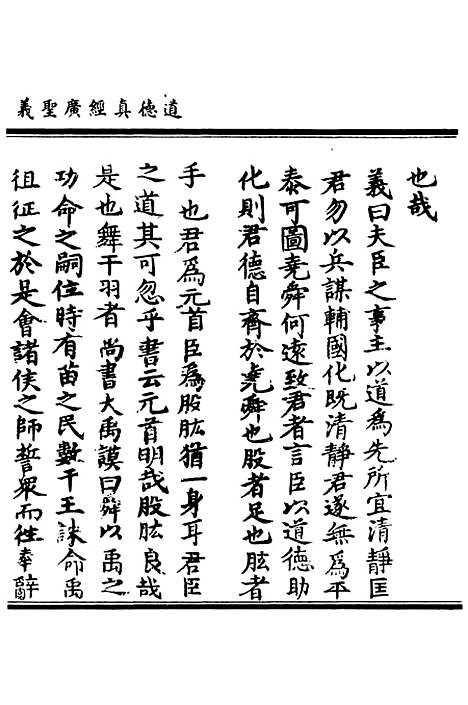 道德真經廣聖義
也哉
義曰夫臣之事主以道為先所宜清靜匡
君勿以兵謀輔國化既清靜君遂無為平
泰可圖堯舜何遠致君者言臣以道德助
化則君德自齊於堯舜也股者足也肱者
手也君為元首臣為股肱猶一身耳君臣
之道其可忽乎書云元首明哉股肱良哉
是也舞干羽者尚書大禹謨曰舜以禹之
功命之嗣位時有苗之民數干王誅命禹
徂征之於是會諸侯之師誓眾而徃奉辭